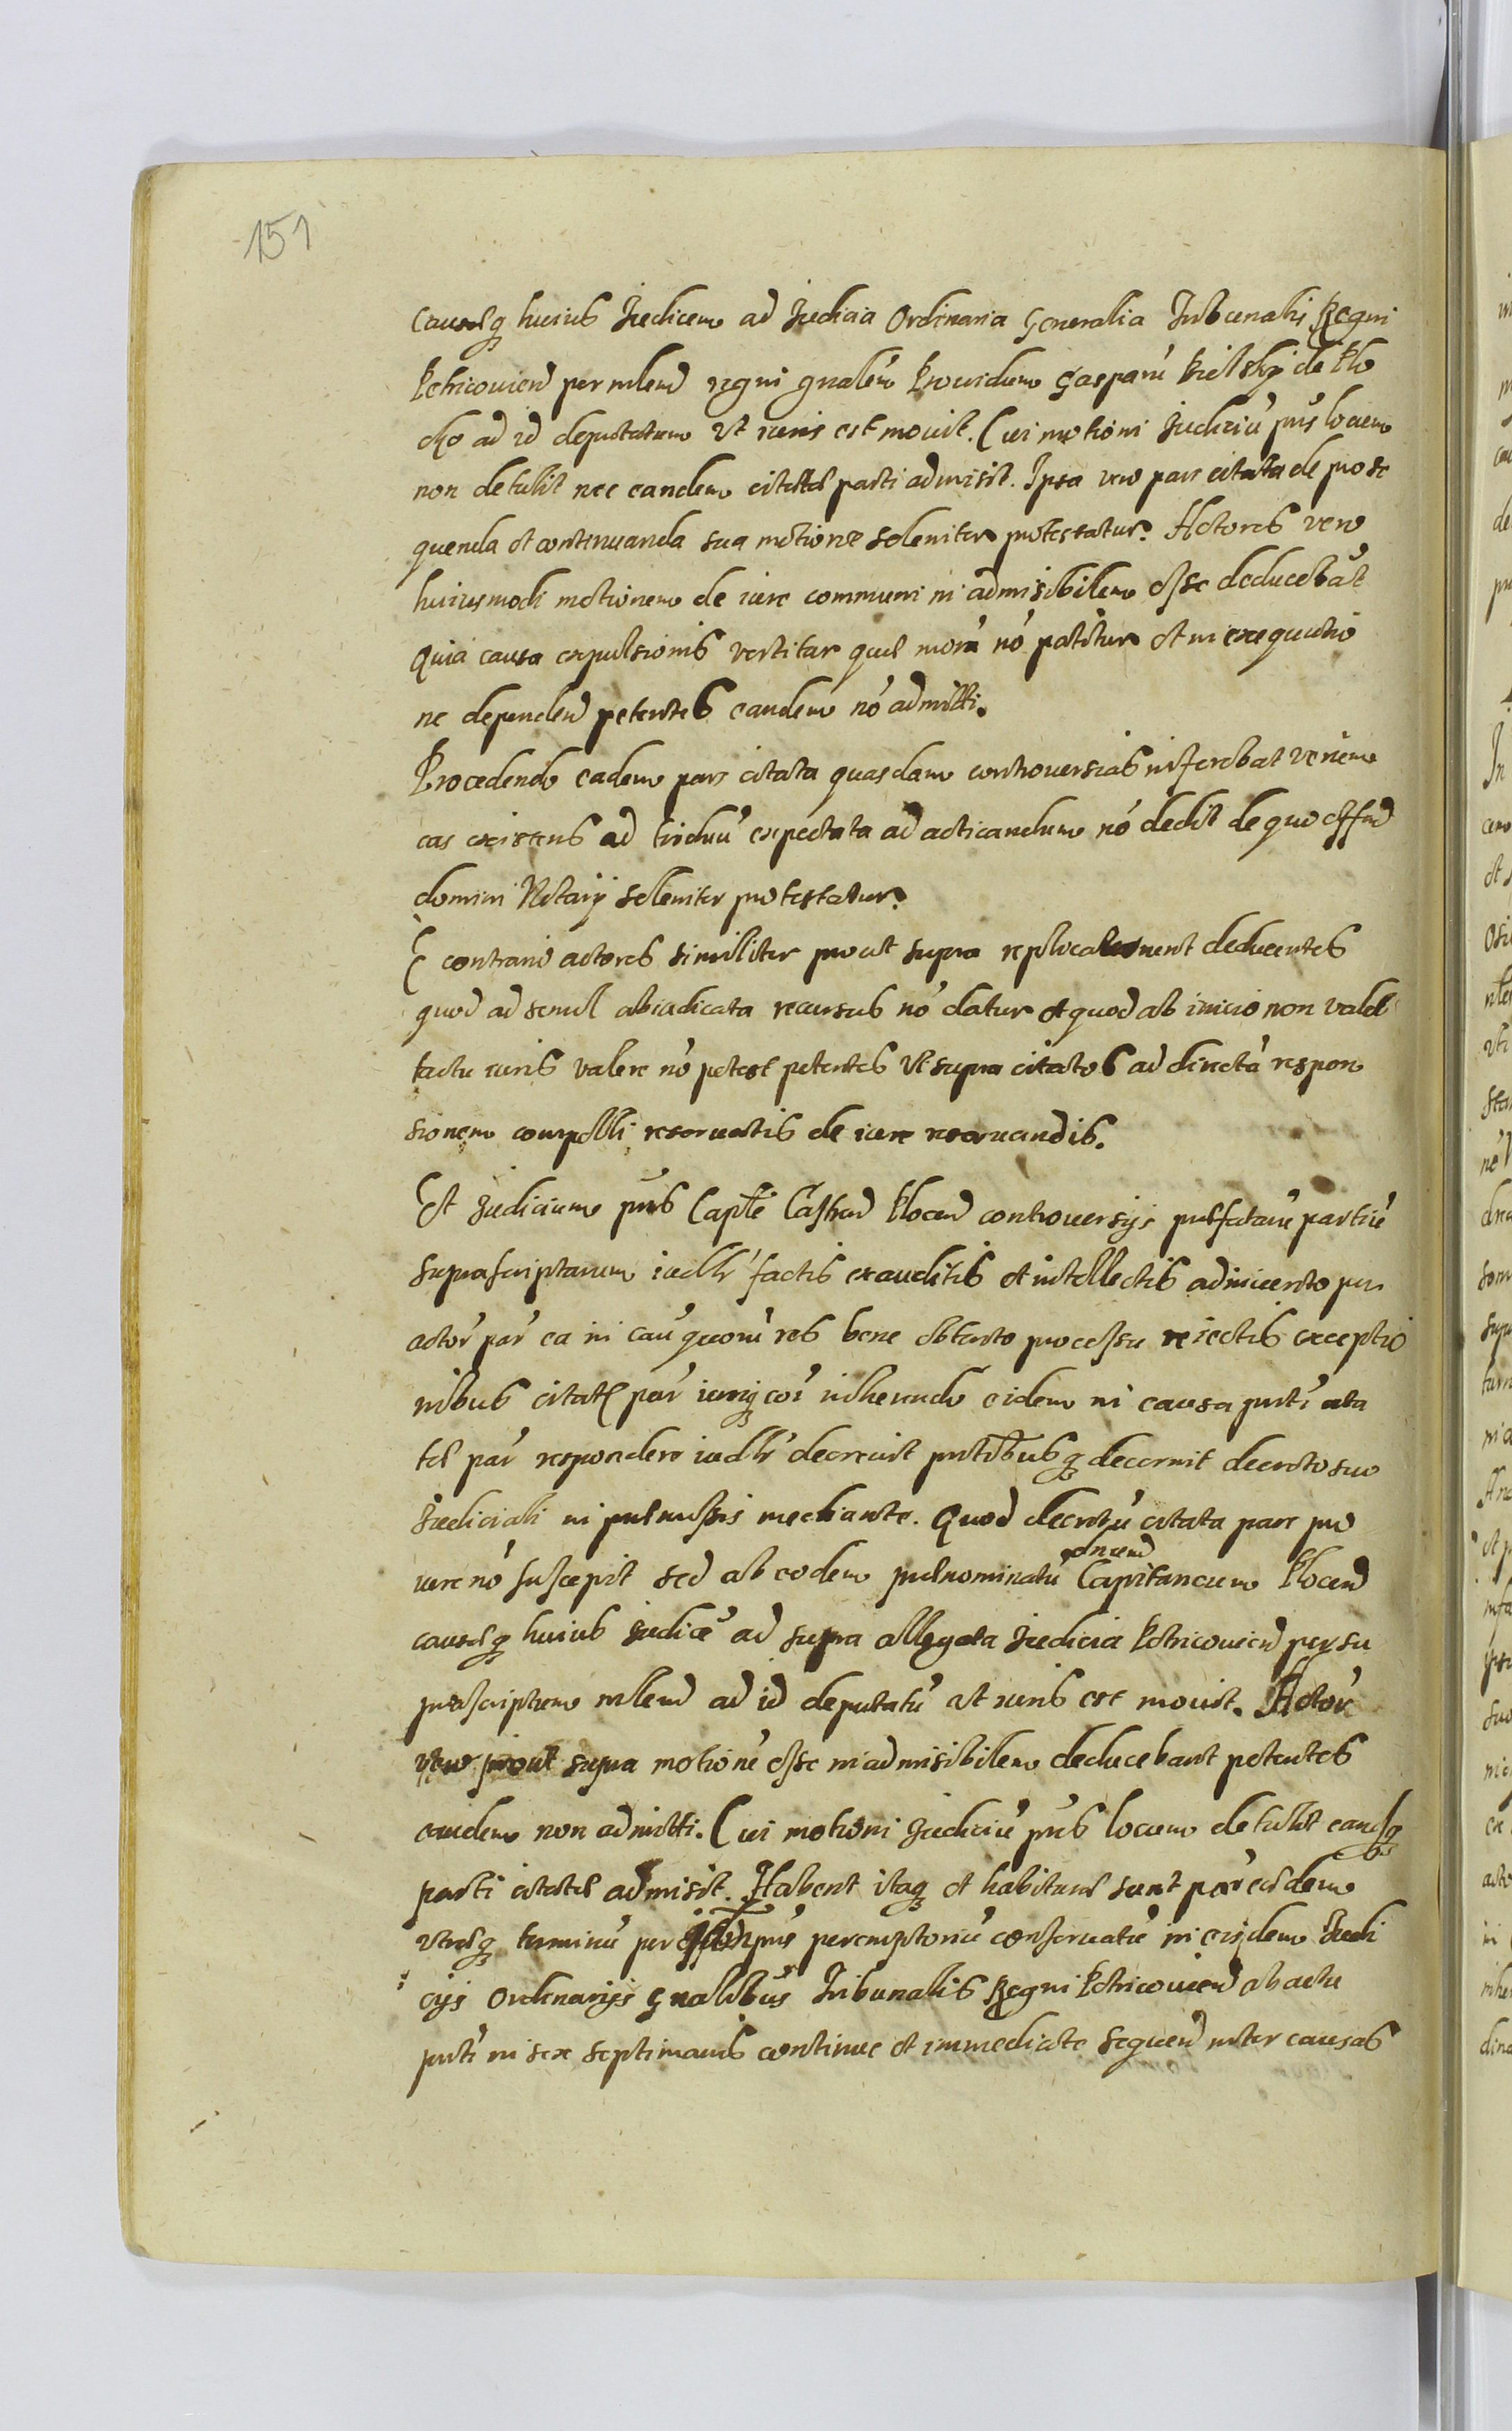 151
causaeq huius Iudicem ad Iudicia Ordinaria Generalia Tribunalis Regni
Petricouien per mlem regni gnalem Prouidum Gasparu Bielsky de Plo
cko ad id deputatum vt iuris est mouit. Cui motioni Iudiciu pns locum
non detulit nec eandem citatae parti admisit. Ipsa vero pars citata de prose
quenda et continuanda sua motione soleniter protestatur. Actores vero
huiusmodi motionem de iure communi inadmisibilem esse deducebat
Quia causa expulsionis vertitur quae mora no patitur et in exequutio
ne dependen petentes eandem no admitti.
Procedendo eadem pars citata quasdam controuersias inferebat verum
eas existens ad triduu expectata ad acticandum no dedit de quo offid
domini Notarij soleniter protestatur.
E contrario actores similiter prout supra deducentes
quod ad semel abiudicata recursus no datur et quod ab inicio non valet
tractu iuris valere no potest petentes vt supra citatos ad directa respon
sionem compelli reseruatis de iure reseruandis.
Et Iudicium pns Captle Castren Plocen controuersijs praefataru partiu
suprascriptarum iudlr factis exauditis et intellectis adinuento per
actor par ea in cau quoru res bene obtento processu reiectis exceptio
nibus citat par iuriq coi inherendo eidem in causa pnti cita
tae par respondere iudlr decreuit pntibusq decernit decreto suo
Iudiciali in praemissis mediante. Quod decretu citata pars pro
iure no suscepit sed ab eodem praenominatu Capitaneum Plocen
causaeq huius iudice ad supra allegata Iudicia Petricouien per su
prascriptum mlem ad id deputatu vt iuris est mouit. Actor
vero prout supra motione esse inadmisibilem deducebant petentes
eandem non admitti. Cui motioni Iudiciu pns locum detulit eandq
parti citatae admisit. Habent itaq et habiturae sunt par eaedem
vtraeq terminu per pns peremptoriu conseruatu in eisdem Iudi
cijs Ordinarijs Gnalibus Tribunalis Regni Petricouien ab actu
pnti in sex septimanis continue et immediate sequen inter causas